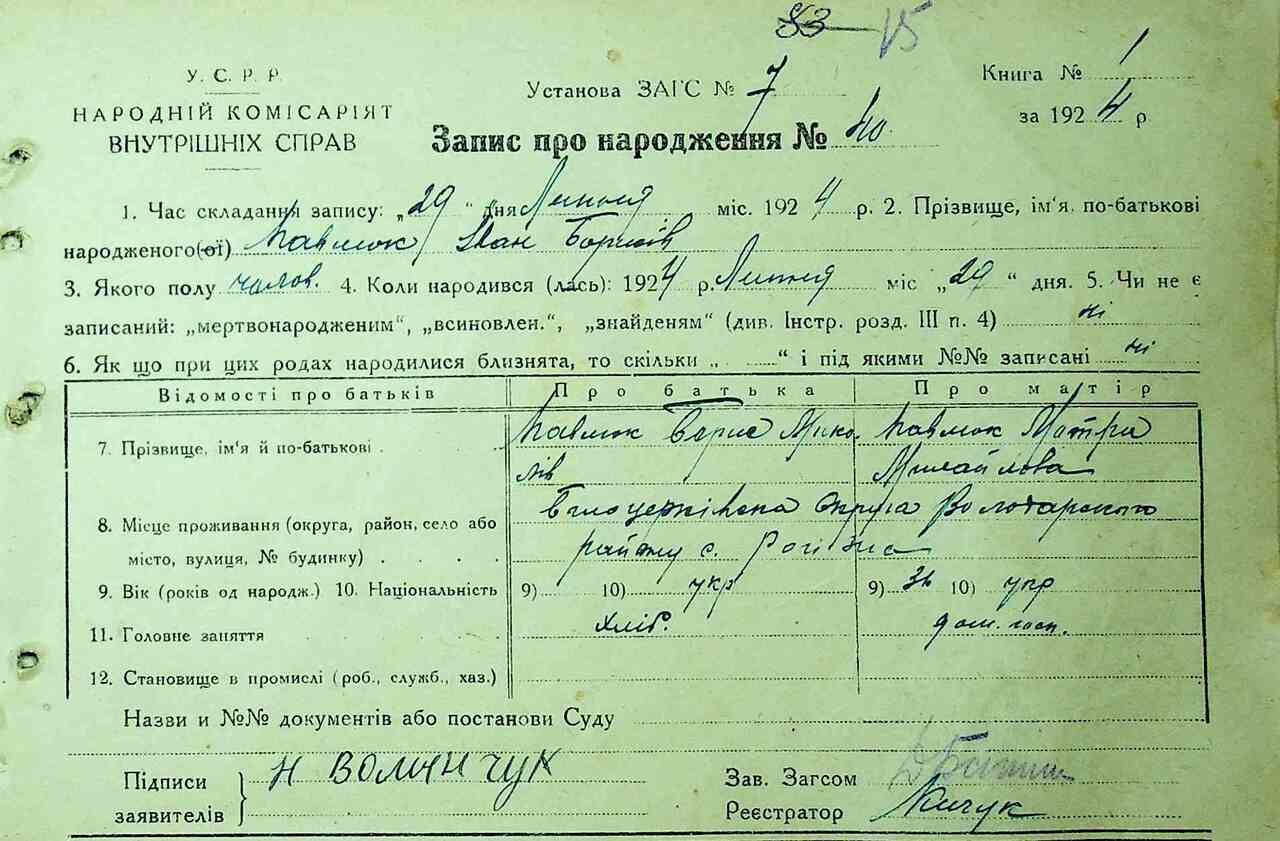 83 15
У. С. Р. Р.
НАРОДНІЙ КОМІСАРІЯТ
ВНУТРІШНІХ СПРАВ
Установа ЗАГС № 7
Книга № 1
за 1924 р.
Запис про народження № 40.
1. Час складання запису: „29“ дня Лютого міс. 1924 р. 2. Прізвище, ім'я, по-батькові
народженого(ої) Павлюк Іван Борисів
3. Якого полу чолов. 4. Коли народився (лась): 1924 р. Лютого міс „29“ дня. 5. Чи не є
записаний: „мертвонародженим“, „всиновлен.“, „знайденям“ (див. Інстр. розд. III п. 4) ні
6. Як що при цих родах народилися близнята, то скільки „ “ і під якими №№ записані ні
Відомості про батьків Про батька Про матір
7. Прізвище, ім'я й по-батькові . Павлюк Борис Мико- Павлюк Мотря
лів Михайлова
8. Місце проживання (округа, район, село або Білоцерківська Округа Володарського
місто, вулиця, № будинку) . . . . району с. Рогізна
9. Вік (років од народж.) 10. Національність 9) 10) укр 9) 36 10) укр
11. Головне заняття хліб. дом. госп.
12. Становище в промислі (роб., служб., хаз.)
Назви и №№ документів або постанови Суду
Підписи
заявителів
Н ВОЛИНЧУК
Зав. Загсом
Реєстратор Кичук